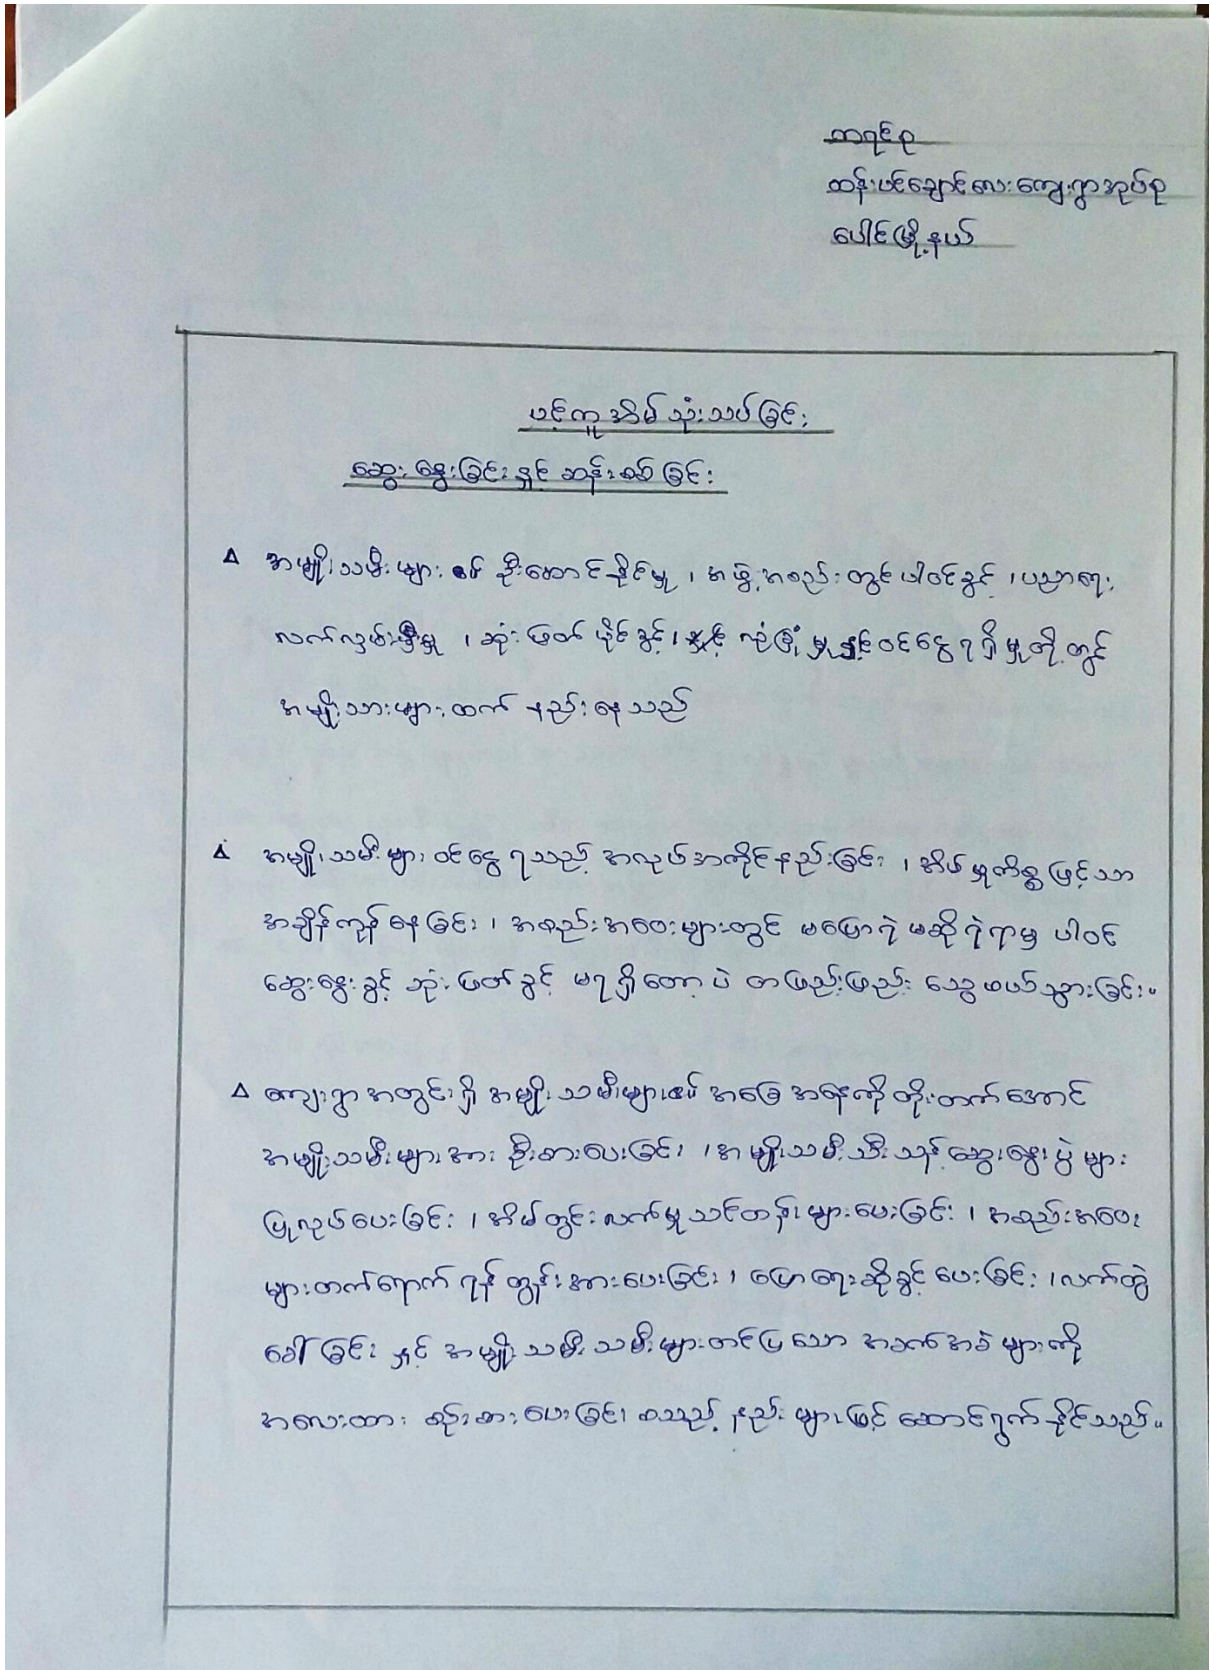 ကရင်စု
ထန်းပင်ချောင်လေးကျေးရွာအုပ်စု
ပေါင်မြို့နယ်
ပင့်ကူအိမ်သုံးသပ်ခြင်း
ဆွေးနွေးခြင်းနှင့် ဆန်းစစ်ခြင်း
အမျိုးသမီးများ၏ ဦးဆောင်နိုင်မှု ၊ အဖွဲ့အစည်းတွင်ပါဝင်ခွင့် ၊ ပညာရေး
လက်လှမ်းမှီမှု ၊ ဆုံးဖြတ်ပိုင်ခွင့် ၊ လုံခြုံမှုနှင့်ဝင်ငွေရရှိမှုတို့တွင်
အမျိုးသားများထက် နည်းနေသည်
အမျိုးသမီးများ ဝင်ငွေရသည့် အလုပ်အကိုင်နည်းခြင်း ၊ အိမ်မှုကိစ္စဖြင့်သာ
အချိန်ကုန်နေခြင်း ၊ အစည်းအဝေးများတွင် မပြောရဲ မဆိုရဲရာမှ ပါဝင်
ဆွေးနွေးခွင့် ဆုံးဖြတ်ခွင့် မရရှိတော့ပဲ တဖြည်းဖြည်း သွေဖယ်သွားခြင်း။
ကျေးရွာအတွင်းရှိ အမျိုးသမီးများ၏ အခြေအနေကို တိုးတက်အောင်
အမျိုးသမီးများအား ဦးစားပေးခြင်း ၊ အမျိုးသမီးသီးသန့်ဆွေးနွေးပွဲများ
ပြုလုပ်ပေးခြင်း ၊ အိမ်တွင်းလက်မှုသင်တန်းများပေးခြင်း ၊ အစည်းအဝေး
များတက်ရောက်ရန် တွန်းအားပေးခြင်း ၊ ပြောရေးဆိုခွင့်ပေးခြင်း ၊ လက်တွဲ
ခေါ်ခြင်း နှင့် အမျိုးသမီးသမီးများတင်ပြသော အခက်အခဲများကို
အလေးထား စဉ်းစားပေးခြင်း စသည့် နည်းများဖြင့် ဆောင်ရွက်နိုင်သည်။